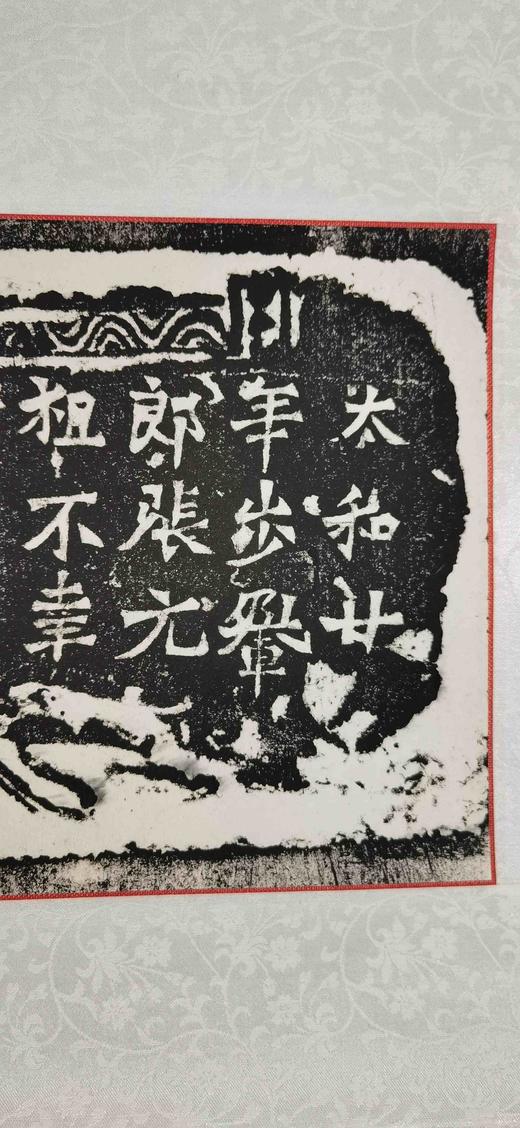 太和廿
年步轝
郎張元
祖不幸